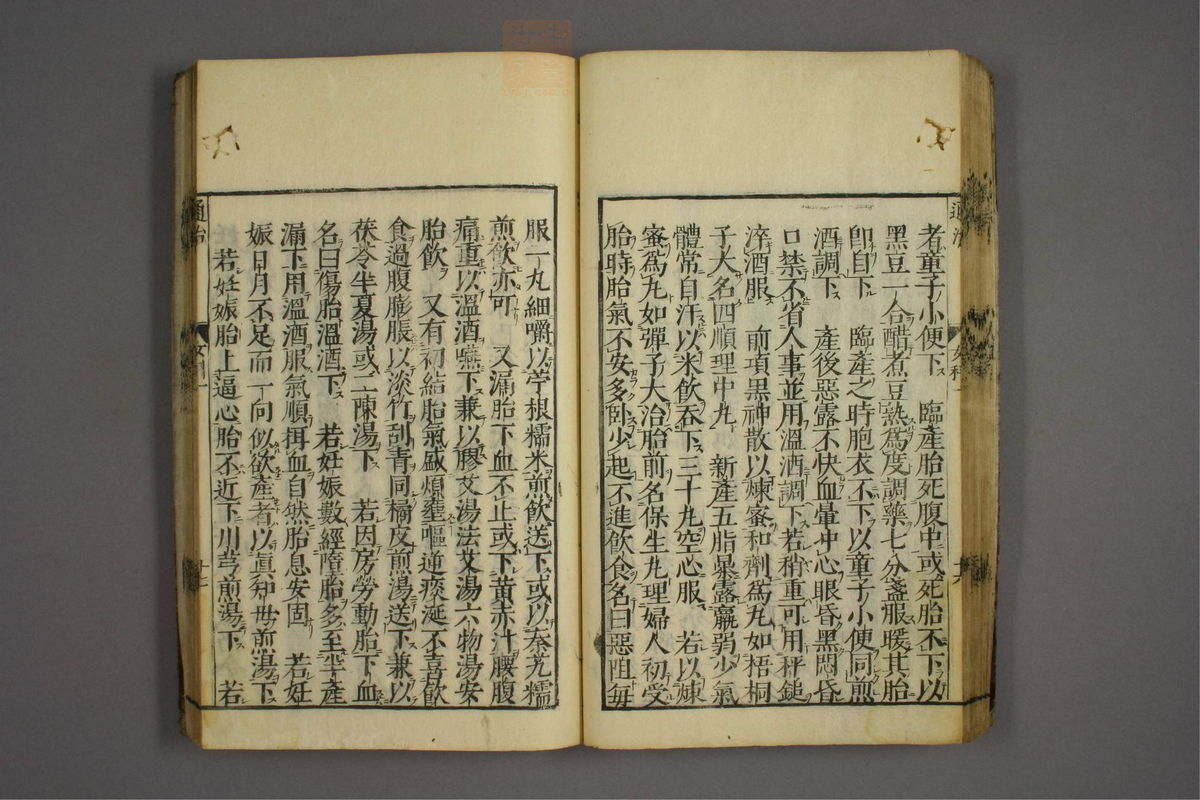 者童子小便下　臨產胎死腹中或死胎不下以
黑豆一合醋煮豆熟爲度調藥七分盞服暖其胎
卽自下　臨產之時胞衣不下以童子小便同煎
酒調下　產後惡露不快血暈中心眼昏黑悶昏
口禁不省人事並用溫酒調下若稍重可用秤鎚
淬酒服　前項黑神散以煉蜜和劑爲丸如梧桐
子大名四順理中丸　新產五脂暴露羸弱少氣
體常自汗以米飲吞下三十丸空心服　若以煉
蜜爲丸如彈子大治胎前名保生丸理婦人初受
胎時胎氣不安多臥少起不進飲食名曰惡阻每
服一丸細嚼以苧根糯米煎飲送下或以秦艽糯
煎飲亦可　又漏胎下血不止或下黃赤汁腰腹
痛重以溫酒嚥下兼以膠艾湯法艾湯六物湯安
胎飲　又有初結胎氣盛煩壅嘔逆痰涎不喜飲
食過腹膨脹以淡竹刮青同橘皮煎湯送下兼以
茯苓半夏湯或二陳湯下　若因房勞動胎下血
名曰傷胎溫酒下　若妊娠數經墮胎多至半產
漏下用溫酒服氣順拜血自然胎息安固　若妊
娠日月不足而一向似欲產者以真知母煎湯下
若妊娠胎上逼心胎不近下川芎煎湯下　若
通治
女科一
十六
通治
十七